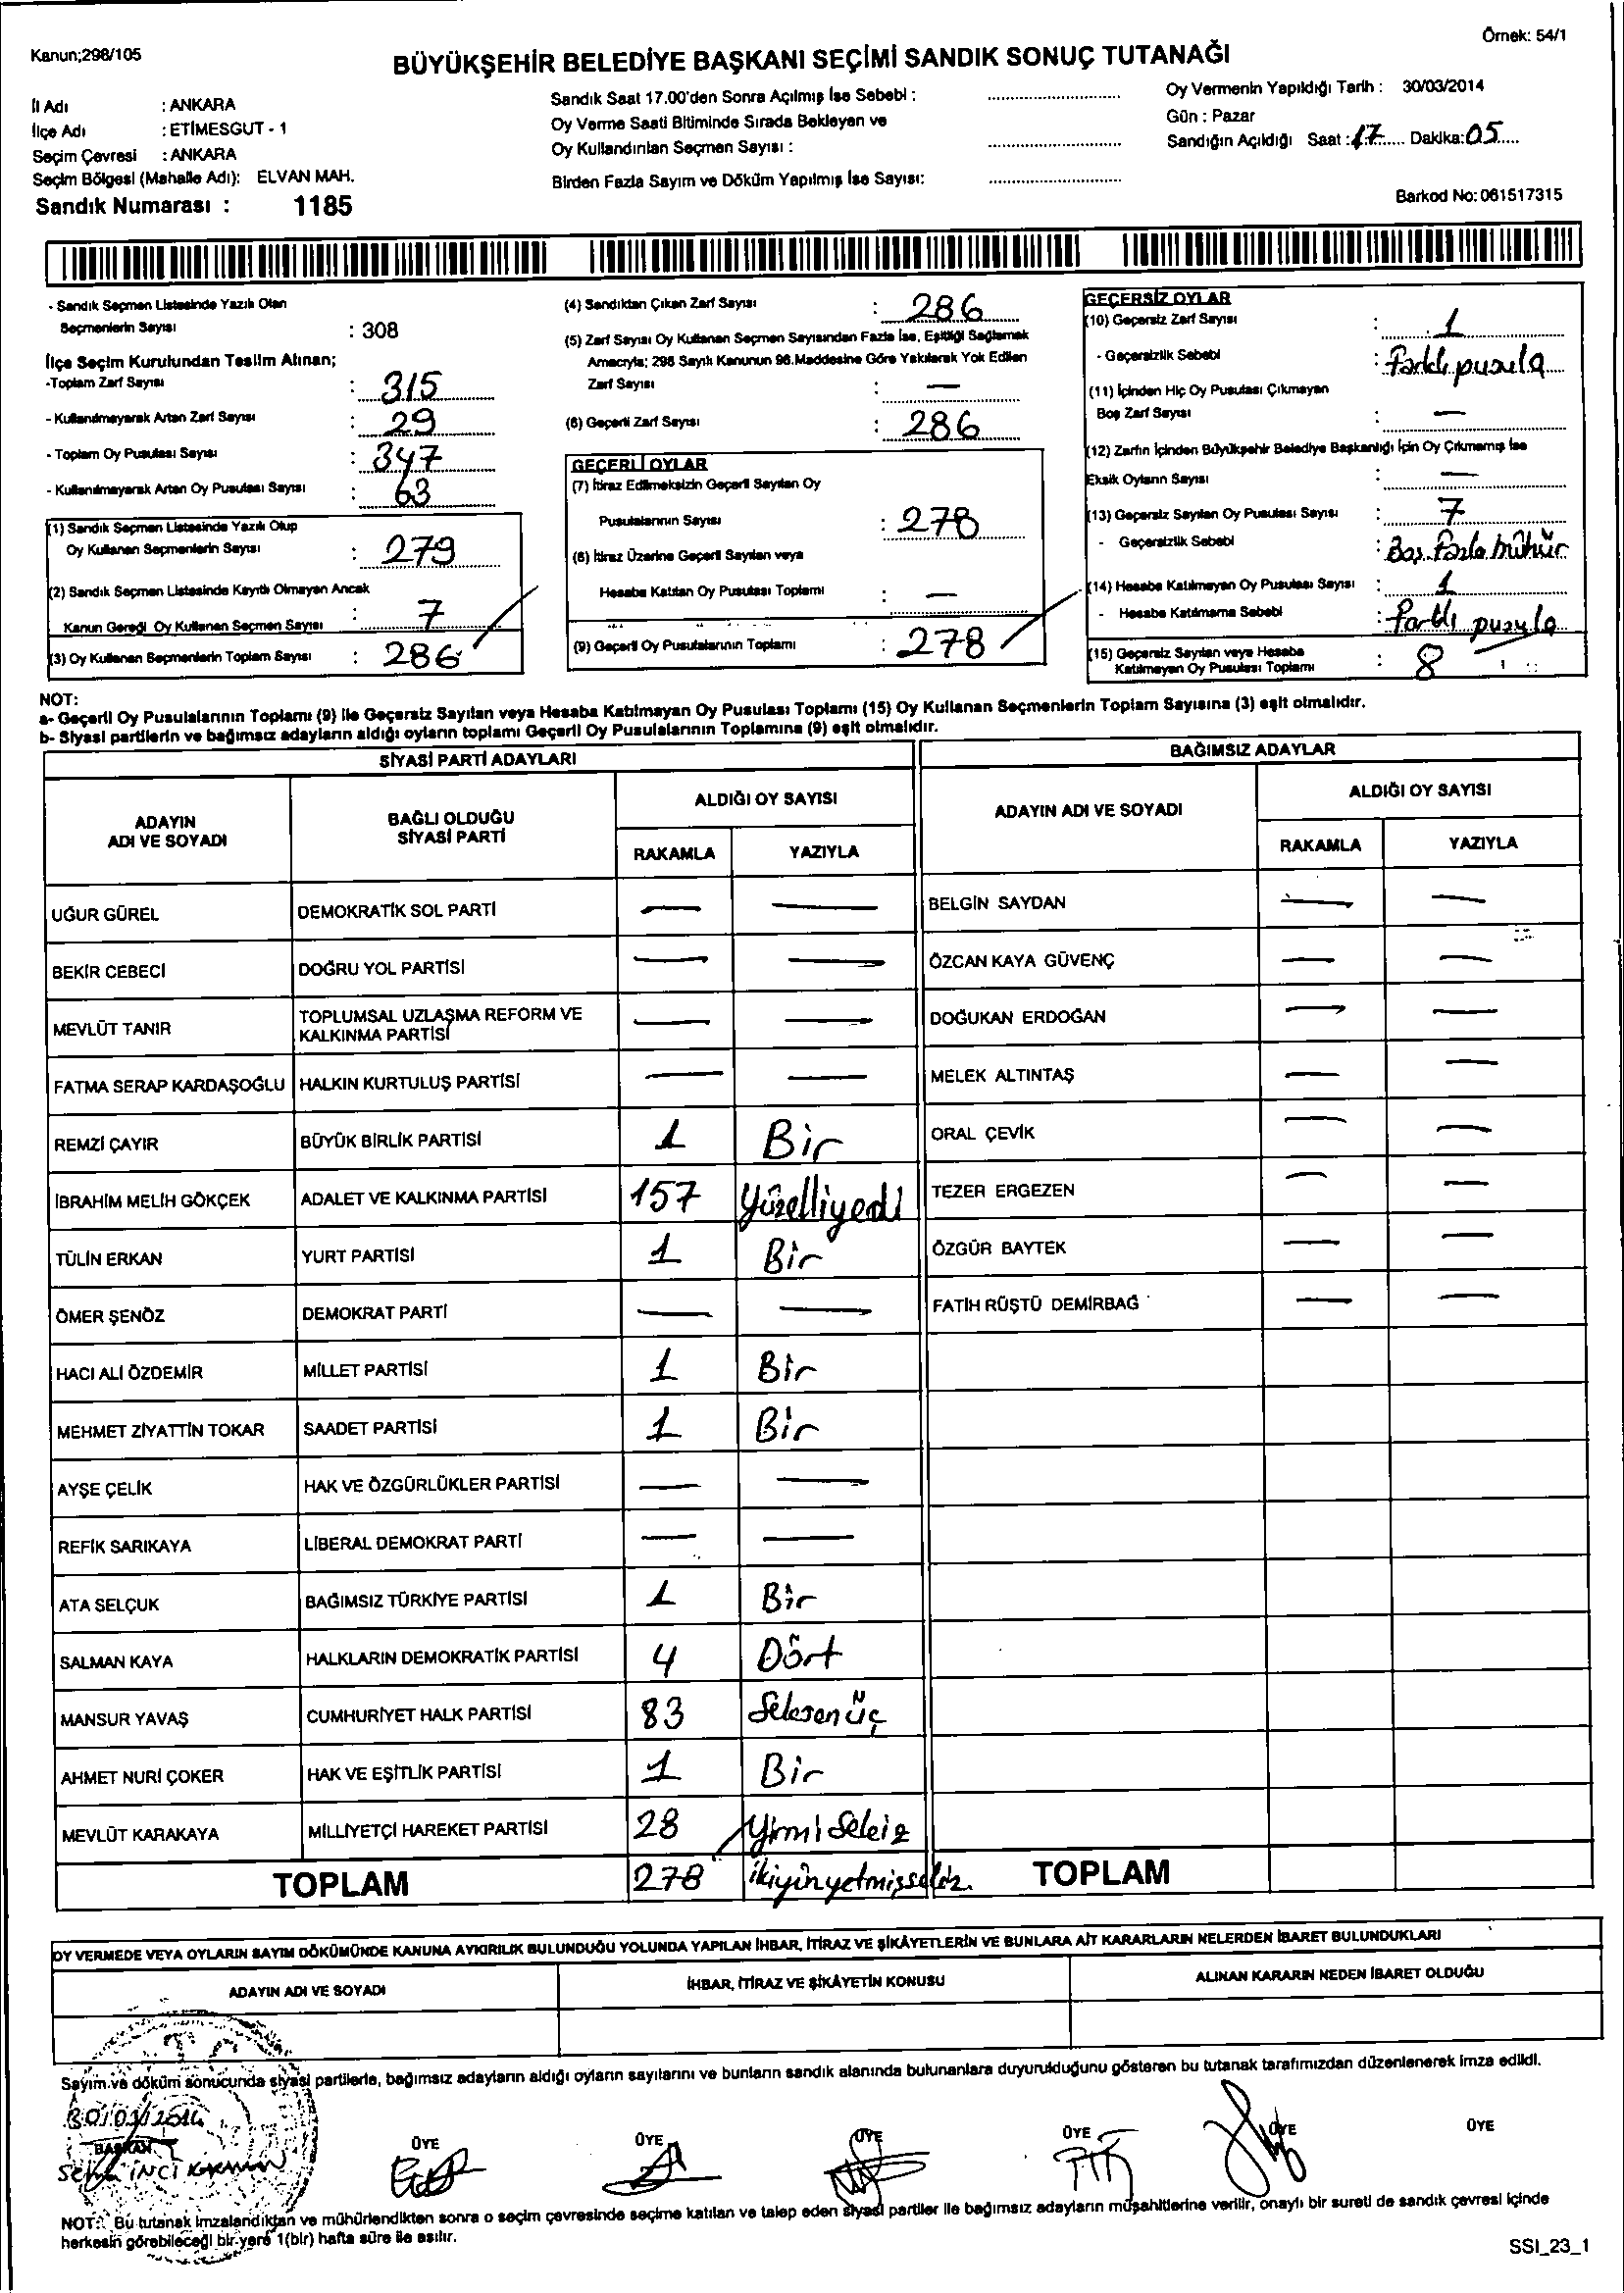 Kanun;298/105
Örnek: 54/1
BÜYÜKŞEHİR BELEDİYE BAŞKANI SEÇİMİ SANDIK SONUÇ TUTANAĞI
İl Adı : ANKARA
İlçe Adı : ETİMESGUT - 1
Seçim Çevresi : ANKARA
Seçim Bölgesi (Mahalle Adı): ELVAN MAH.
Sandık Numarası : 1185
Sandık Saat 17.00'den Sonra Açılmış İse Sebebi :
Oy Verme Saati Bitiminde Sırada Bekleyen ve
Oy Kullandırılan Seçmen Sayısı :
Birden Fazla Sayım ve Döküm Yapılmış İse Sayısı:
Oy Vermenin Yapıldığı Tarih : 30/03/2014
Gün : Pazar
Sandığın Açıldığı Saat : 17 Dakika: 05
Barkod No: 061517315
- Sandık Seçmen Listesinde Yazılı Olan
Seçmenlerin Sayısı : 308
İlçe Seçim Kurulundan Teslim Alınan;
-Toplam Zarf Sayısı : 315
- Kullanılmayarak Artan Zarf Sayısı : 29
- Toplam Oy Pusulası Sayısı : 347
- Kullanılmayarak Artan Oy Pusulası Sayısı : 63
(1) Sandık Seçmen Listesinde Yazılı Olup
Oy Kullanan Seçmenlerin Sayısı : 279
(2) Sandık Seçmen Listesinde Kayıtlı Olmayan Ancak
Kanun Gereği Oy Kullanan Seçmen Sayısı : 7
(3) Oy Kullanan Seçmenlerin Toplam Sayısı : 286
(4) Sandıktan Çıkan Zarf Sayısı : 286
(5) Zarf Sayısı Oy Kullanan Seçmen Sayısından Fazla İse, Eşitliği Sağlamak
Amacıyla; 298 Sayılı Kanunun 98.Maddesine Göre Yakılarak Yok Edilen
Zarf Sayısı : —
(6) Geçerli Zarf Sayısı : 286
GEÇERLİ OYLAR
(7) İtiraz Edilmeksizin Geçerli Sayılan Oy
Pusulalarının Sayısı : 278
(8) İtiraz Üzerine Geçerli Sayılan veya
Hesaba Katılan Oy Pusulası Toplamı : —
(9) Geçerli Oy Pusulalarının Toplamı : 278
GEÇERSİZ OYLAR
(10) Geçersiz Zarf Sayısı : 1
- Geçersizlik Sebebi : Farklı pusula
(11) İçinden Hiç Oy Pusulası Çıkmayan
Boş Zarf Sayısı : —
(12) Zarfın İçinden Büyükşehir Belediye Başkanlığı İçin Oy Çıkmamış İse
Eksik Oyların Sayısı : —
(13) Geçersiz Sayılan Oy Pusulası Sayısı : 7
- Geçersizlik Sebebi : Boş. Fazla mühür
(14) Hesaba Katılmayan Oy Pusulası Sayısı : 1
- Hesaba Katılmama Sebebi : Farklı pusula
(15) Geçersiz Sayılan veya Hesaba
Katılmayan Oy Pusulası Toplamı : 8
NOT:
a- Geçerli Oy Pusulalarının Toplamı (9) ile Geçersiz Sayılan veya Hesaba Katılmayan Oy Pusulası Toplamı (15) Oy Kullanan Seçmenlerin Toplam Sayısına (3) eşit olmalıdır.
b- Siyasi partilerin ve bağımsız adayların aldığı oyların toplamı Geçerli Oy Pusulalarının Toplamına (9) eşit olmalıdır.
SİYASİ PARTİ ADAYLARI
ADAYIN ADI VE SOYADI
BAĞLI OLDUĞU SİYASİ PARTİ
ALDIĞI OY SAYISI
RAKAMLA YAZIYLA
UĞUR GÜREL DEMOKRATİK SOL PARTİ — —
BEKİR CEBECİ DOĞRU YOL PARTİSİ — —
MEVLÜT TANIR TOPLUMSAL UZLAŞMA REFORM VE KALKINMA PARTİSİ — —
FATMA SERAP KARDAŞOĞLU HALKIN KURTULUŞ PARTİSİ — —
REMZİ ÇAYIR BÜYÜK BİRLİK PARTİSİ 1 Bir
İBRAHİM MELİH GÖKÇEK ADALET VE KALKINMA PARTİSİ 157 Yüzelliyedi
TÜLİN ERKAN YURT PARTİSİ 1 Bir
ÖMER ŞENÖZ DEMOKRAT PARTİ — —
HACI ALİ ÖZDEMİR MİLLET PARTİSİ 1 Bir
MEHMET ZİYATTİN TOKAR SAADET PARTİSİ 1 Bir
AYŞE ÇELİK HAK VE ÖZGÜRLÜKLER PARTİSİ — —
REFİK SARIKAYA LİBERAL DEMOKRAT PARTİ — —
ATA SELÇUK BAĞIMSIZ TÜRKİYE PARTİSİ 1 Bir
SALMAN KAYA HALKLARIN DEMOKRATİK PARTİSİ 4 Dört
MANSUR YAVAŞ CUMHURİYET HALK PARTİSİ 83 Seksenüç
AHMET NURİ ÇOKER HAK VE EŞİTLİK PARTİSİ 1 Bir
MEVLÜT KARAKAYA MİLLİYETÇİ HAREKET PARTİSİ 28 Yirmisekiz
TOPLAM 278 ikiyüzyetmişsekiz.
BAĞIMSIZ ADAYLAR
ADAYIN ADI VE SOYADI
ALDIĞI OY SAYISI
RAKAMLA YAZIYLA
BELGİN SAYDAN — —
ÖZCAN KAYA GÜVENÇ — —
DOĞUKAN ERDOĞAN — —
MELEK ALTINTAŞ — —
ORAL ÇEVİK — —
TEZER ERGEZEN — —
ÖZGÜR BAYTEK — —
FATİH RÜŞTÜ DEMİRBAĞ — —
TOPLAM
OY VERMEDE VEYA OYLARIN SAYIM DÖKÜMÜNDE KANUNA AYKIRILIK BULUNDUĞU YOLUNDA YAPILAN İHBAR, İTİRAZ VE ŞİKÂYETLERİN VE BUNLARA AİT KARARLARIN NELERDEN İBARET BULUNDUKLARI
ADAYIN ADI VE SOYADI
İHBAR, İTİRAZ VE ŞİKÂYETİN KONUSU
ALINAN KARARIN NEDEN İBARET OLDUĞU
Sayım ve döküm sonucunda siyasi partilerle, bağımsız adayların aldığı oyların sayılarını ve bunların sandık alanında bulunanlara duyurulduğunu gösteren bu tutanak tarafımızdan düzenlenerek imza edildi.
30/03/2014
BAŞKAN ÜYE ÜYE ÜYE ÜYE ÜYE ÜYE
İNCİ
NOT: Bu tutanak imzalandıktan ve mühürlendikten sonra o seçim çevresinde seçime katılan ve talep eden siyasi partiler ile bağımsız adayların müşahitlerine verilir, onaylı bir sureti de sandık çevresi içinde
herkesin görebileceği bir yere 1(bir) hafta süre ile asılır.
SSI_23_1